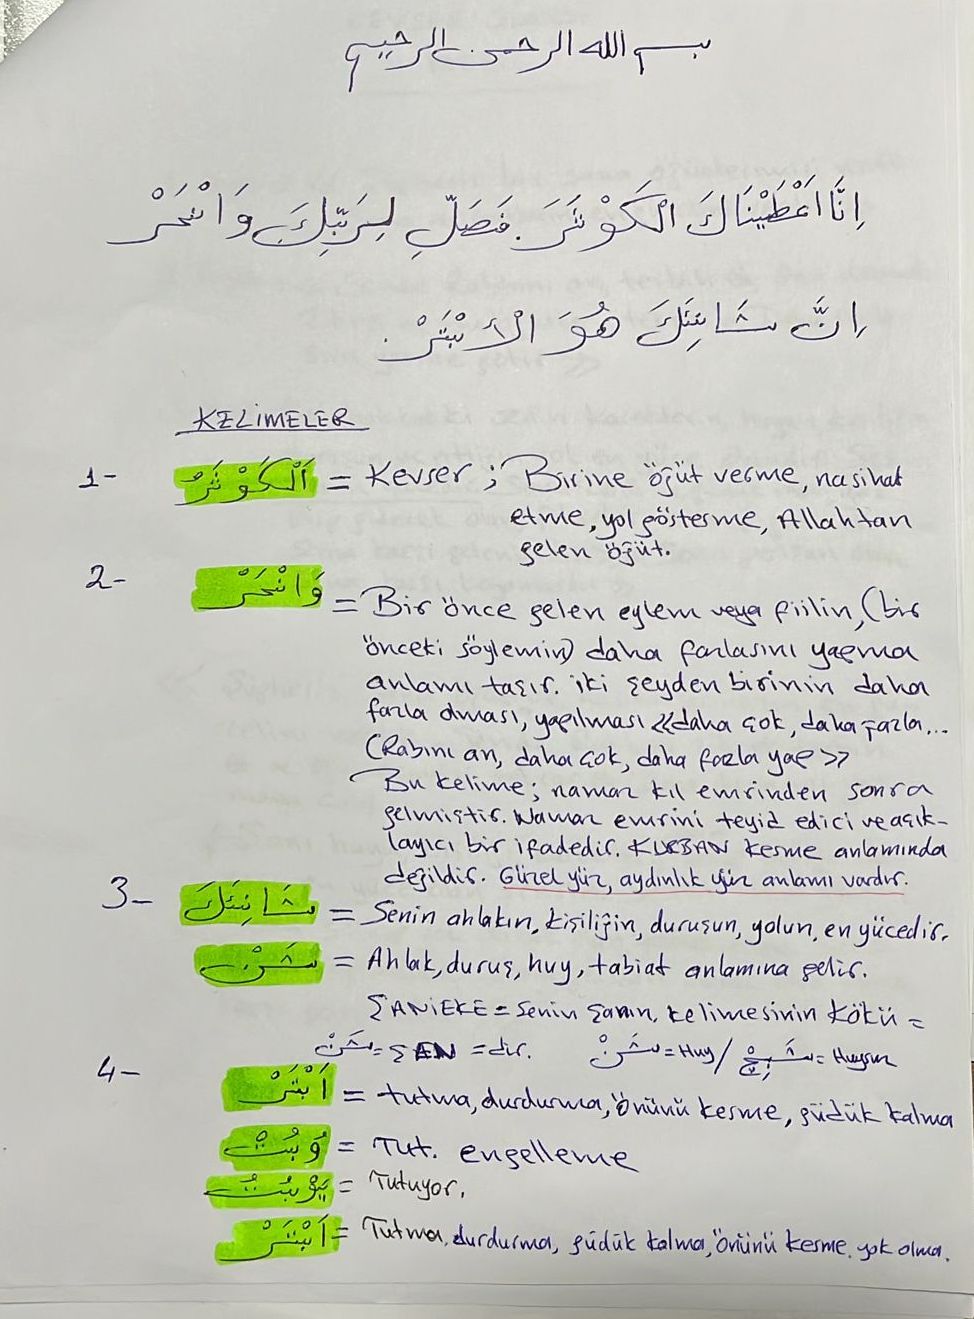 بسم الله الرحمن الرحيم
اِنَّا اَعْطَيْنَاكَ الْكَوْثَرَ. فَصَلِّ لِرَبِّكَ وَانْحَرْ
اِنَّ شَانِئَكَ هُوَ الْاَبْتَرْ.
KELİMELER
1- اَلْكَوْثَرْ = Kevser ; Birine öğüt verme, nasihat
etme, yol gösterme, Allahtan
gelen öğüt.
2- وَانْحَرْ = Bir önce gelen eylem veya fiilin, (bir
önceki söylemin) daha fazlasını yapma
anlamı taşır. iki şeyden birinin daha
fazla olması, yapılması <<daha çok, daha fazla...
(Rabını an, daha çok, daha fazla yap >>
Bu kelime; namaz kıl emrinden sonra
gelmiştir. Namaz emrini teyid edici ve açık-
layıcı bir ifadedir. KURBAN kesme anlamında
değildir. Güzel yüz, aydınlık yüz anlamı vardır.
3- شَانِئَكَ = Senin ahlakın, kişiliğin, duruşun, yolun, en yücedir.
شَنْ = Ahlak, duruş, huy, tabiat anlamına gelir.
ŞANİEKE = Senin şanın, kelimesinin kökü =
شَنْ = ŞAN = dir. شَنْ = Huy / = Huysuz
4- اَبْتَرْ = tutma, durdurma, önünü kesme, güdük kalma
= Tut. engelleme
= Tutuyor.
اَبْتَرْ = Tutma, durdurma, güdük kalma, önünü kesme, yok olma.